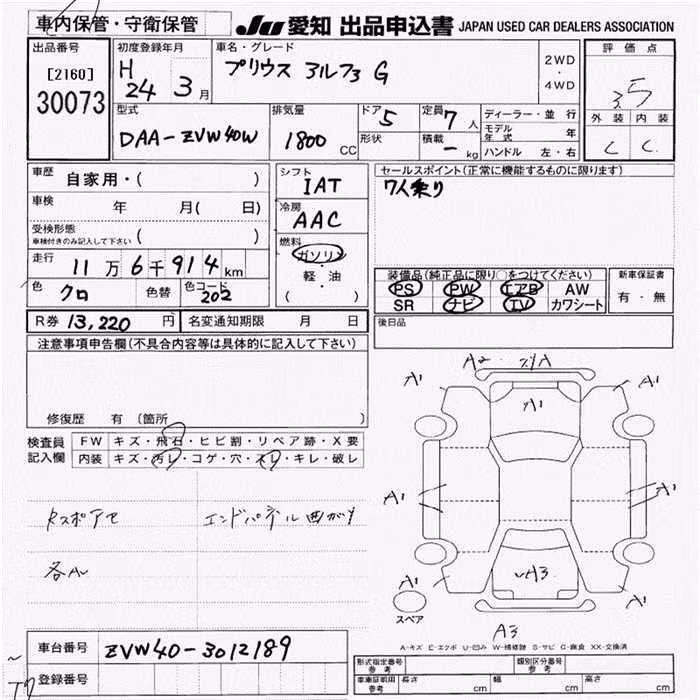 車内保管・守衛保管
JU 愛知 出品申込書 JAPAN USED CAR DEALERS ASSOCIATION
出品番号
[2160]
30073
初度登録年月
H 24 3月
車名・グレード
プリウス アルファ G
2WD
・
4WD
評価点
3.5
外装 内装
C C
型式
DAA-ZVW40W
排気量
1800 CC
ドア 5
形状
定員 7人
積載 - kg
ディーラー・並行
モデル年式 年
ハンドル 左・右
車歴 自家用・( )
車検 年 月( 日)
受検形態
車検付きのみ記入して下さい ( )
走行 11万6千914km
色 クロ 色替 色コード 202
シフト
IAT
冷房
AAC
燃料
ガソリン
・
軽・油
( )
セールスポイント(正常に機能するものに限ります)
7人乗り
装備品(純正品に限り○をつけてください)
PS PW エアB AW
SR ナビ TV カワシート
新車保証書
有・無
R券 13,220円 名変通知期限 月 日
後日品
注意事項申告欄(不具合内容等は具体的に記入して下さい)
修復歴 有 (箇所 )
検査員記入欄
FW キズ・飛石・ヒビ割・リペア跡・X要
内装 キズ・汚レ・コゲ・穴・スレ・キレ・破レ
Rスポアセ エンドパネル曲がり
A2
A1 A1 A1
A1 A1
A1 A3 A1
A3
スペア
A-キズ E-エクボ U-凹み W-補修跡 S-サビ C-腐食 XX-交換済
車台番号 ZVW40-3012189
登録番号
形式指定番号 参考
類別区分番号 参考
車庫証明用 参考 長さ cm 幅 cm 高さ cm